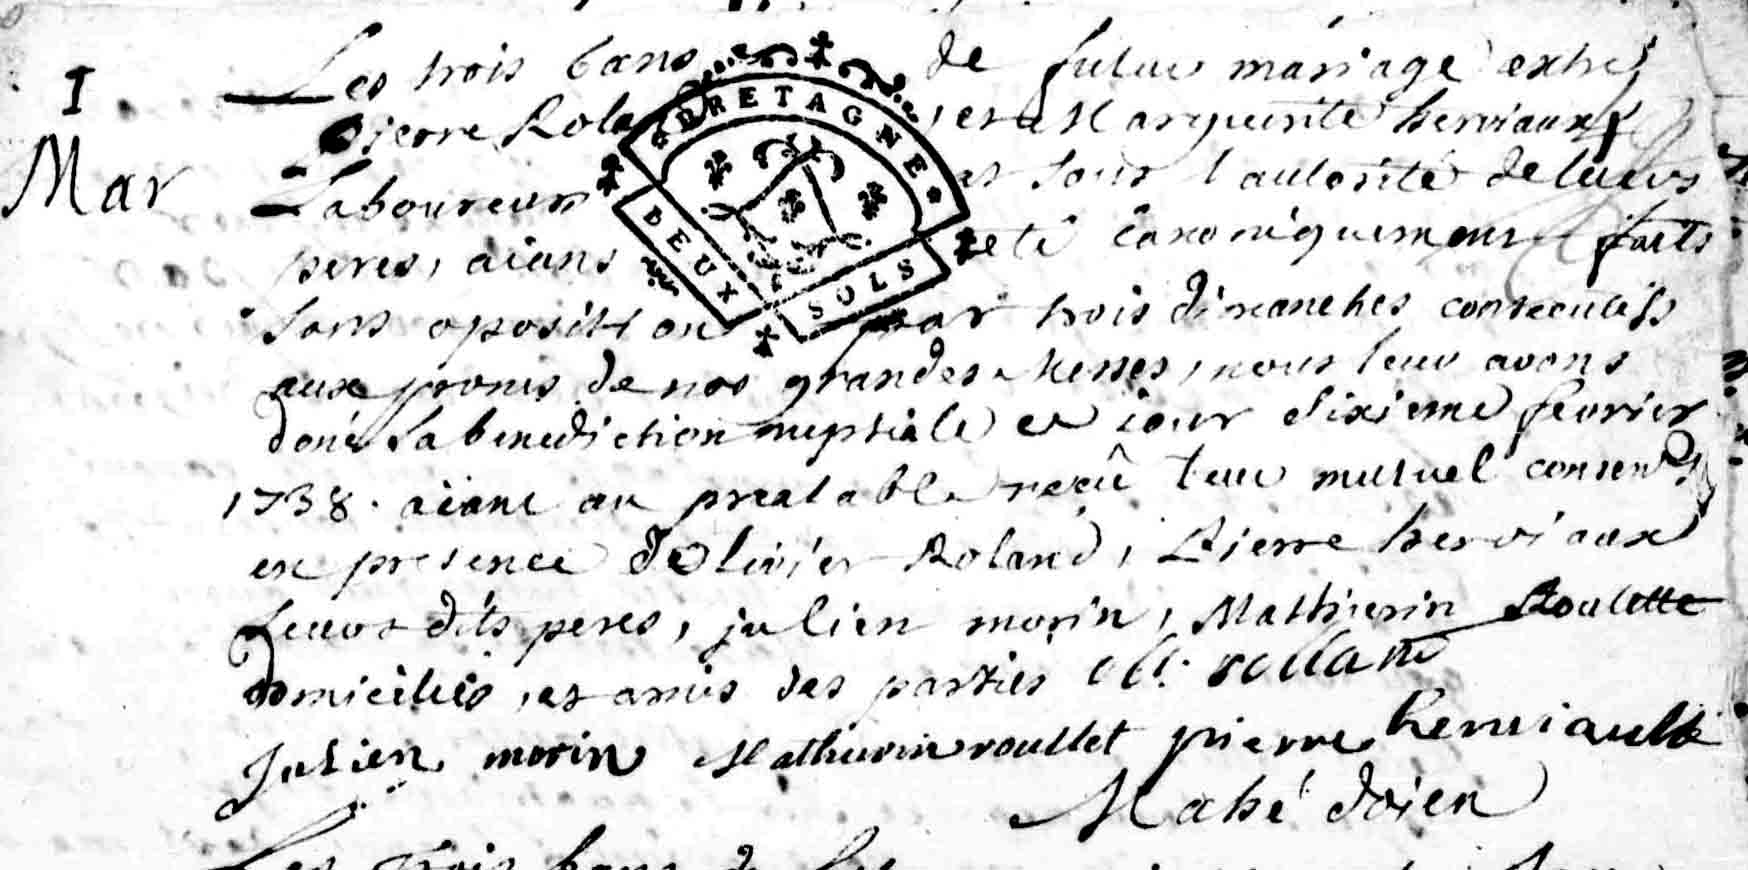 I
Mar
Les trois bans de futur mariage entre
Pierre Rola et Marguerite herviaux
Laboureurs sous l'autorité de leurs
peres, aians eté canoniquement faits
sans oposition par trois dimanches consecutifs
aux prones de nos grandes Messes, nous leur avons
doné la benediction nuptiale ce iour sixieme fevrier
1738. aiant au prealable reçû leur mutuel consent
en presence d'Olivier Roland, Pierre herviaux
Leurs dits peres, julien morin, Mathurin Roulette
domiciliés, et amis des parties oll. rolland
Julien morin Mathurin roullet pierre herviault
Mahé doien
Les trois bans de
BRETAGNE
DEUX SOLS